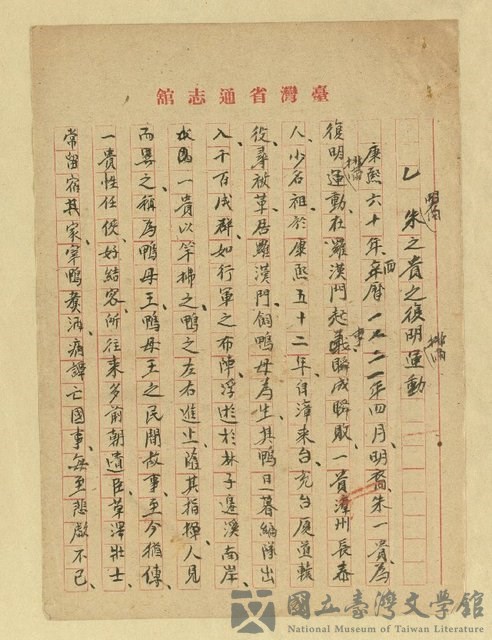 臺灣省通志館
乙 明裔朱之貴之復明排滿運動
康熙六十年、西曆一七二一年四月、明裔朱一貴、為
復明排滿運動、在羅漢門起義、事敗、一貴漳州長泰
人、少名祖、於康熙五十二年、自漳來台、充台厦道轅
役、尋被革、居羅漢門、飼鴨母為生、其鴨旦暮編隊出
入、千百成群、如行軍之布陣、浮游於林子邊溪南岸、
一貴以竿掃之、鴨之左右進止、隨其指揮、人見
而異之、稱為鴨母王、鴨母王之民間故事、至今猶傳、
一貴性任俠、好結客、所往來多前朝遺臣、草澤壯士、
常留宿其家、宰鴨煮酒、痛譚亡國事、無至悲歔不已、
國立臺灣文學館
National Museum of Taiwan Literature